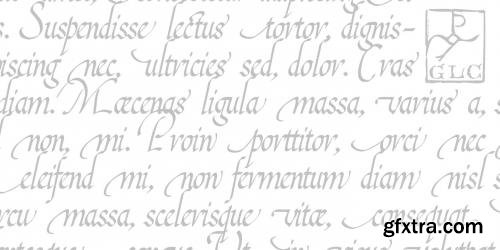 s. Suspendisse lectus tortor, dignis-
piscing nec, ultricies sed, dolor. Cras
diam. Mæcenas ligula massa, varius a, s
non, mi. Proin porttitor, orci nec
eleifend mi, non fermentum diam nisl s
rcu massa, scelerisque vitæ, consequat
GLC
gfxtra.com